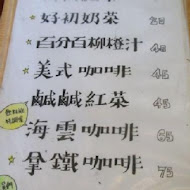 好初奶菜 25
☆百分百柳橙汁 45
☆美式咖啡 45
鹹鹹紅菜 45
☆海雲咖啡 65
☆拿鐵咖啡 75